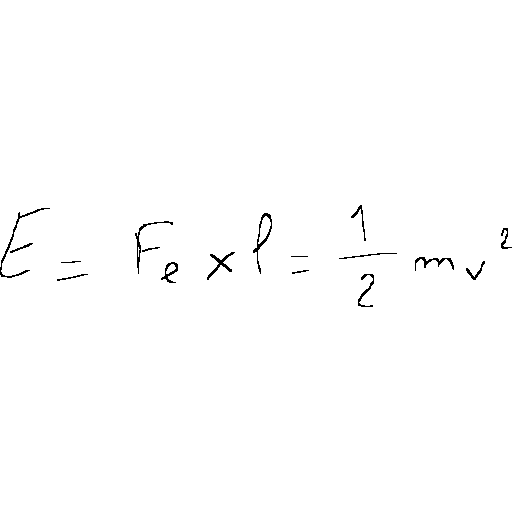 E = F_e × l = \frac{1}{2} m v^2